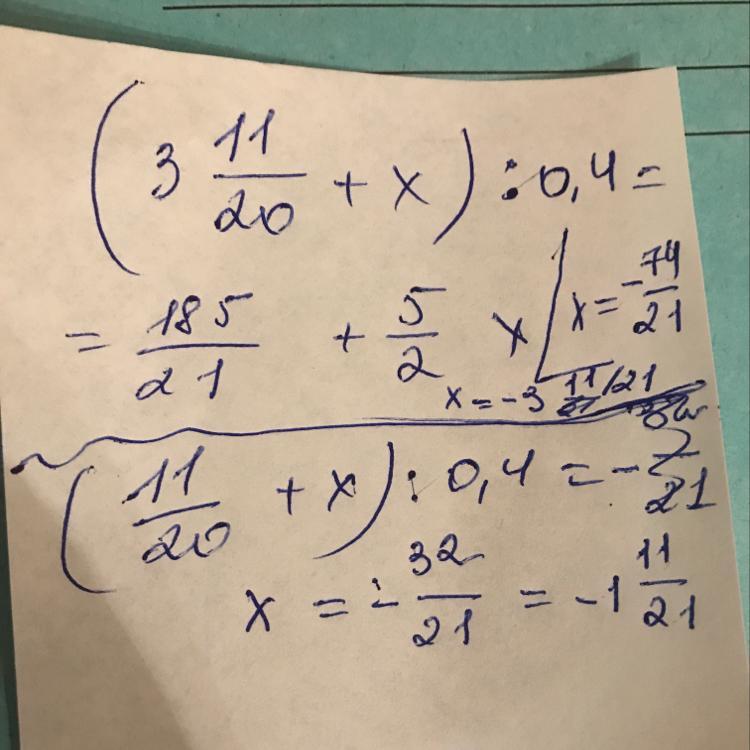 (3 11/20 + x) : 0,4 =
= 185/21 + 5/2 x | x = -74/21
x = -3 11/21
(11/20 + x) : 0,4 = -
x = - 32/21 = -1 11/21